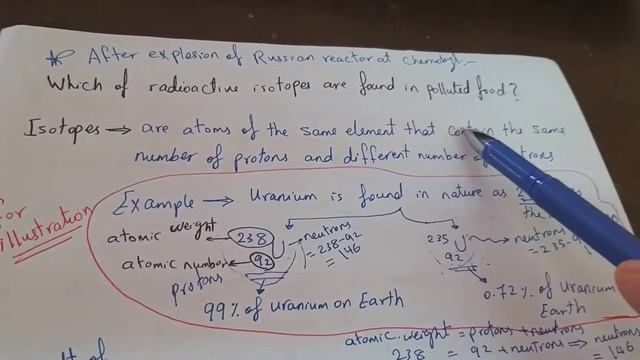 * After explosion of Russian reactor at chernobyl:-
Which of radioactive isotopes are found in polluted food?
Isotopes → are atoms of the same element that contain the same
number of protons and different number of neutrons
For
illustration
Example → Uranium is found in nature as
the
atomic weight ← 238 U → neutrons
= 238-92
= 146
atomic number ← 92
protons
99% of Uranium on Earth
235 U → neutrons
= 235-9
92
0.72% of Uranium
Earth
atomic weight = protons + neutrons
238 = 92 + neutrons ⇒ neutrons
= 146
of